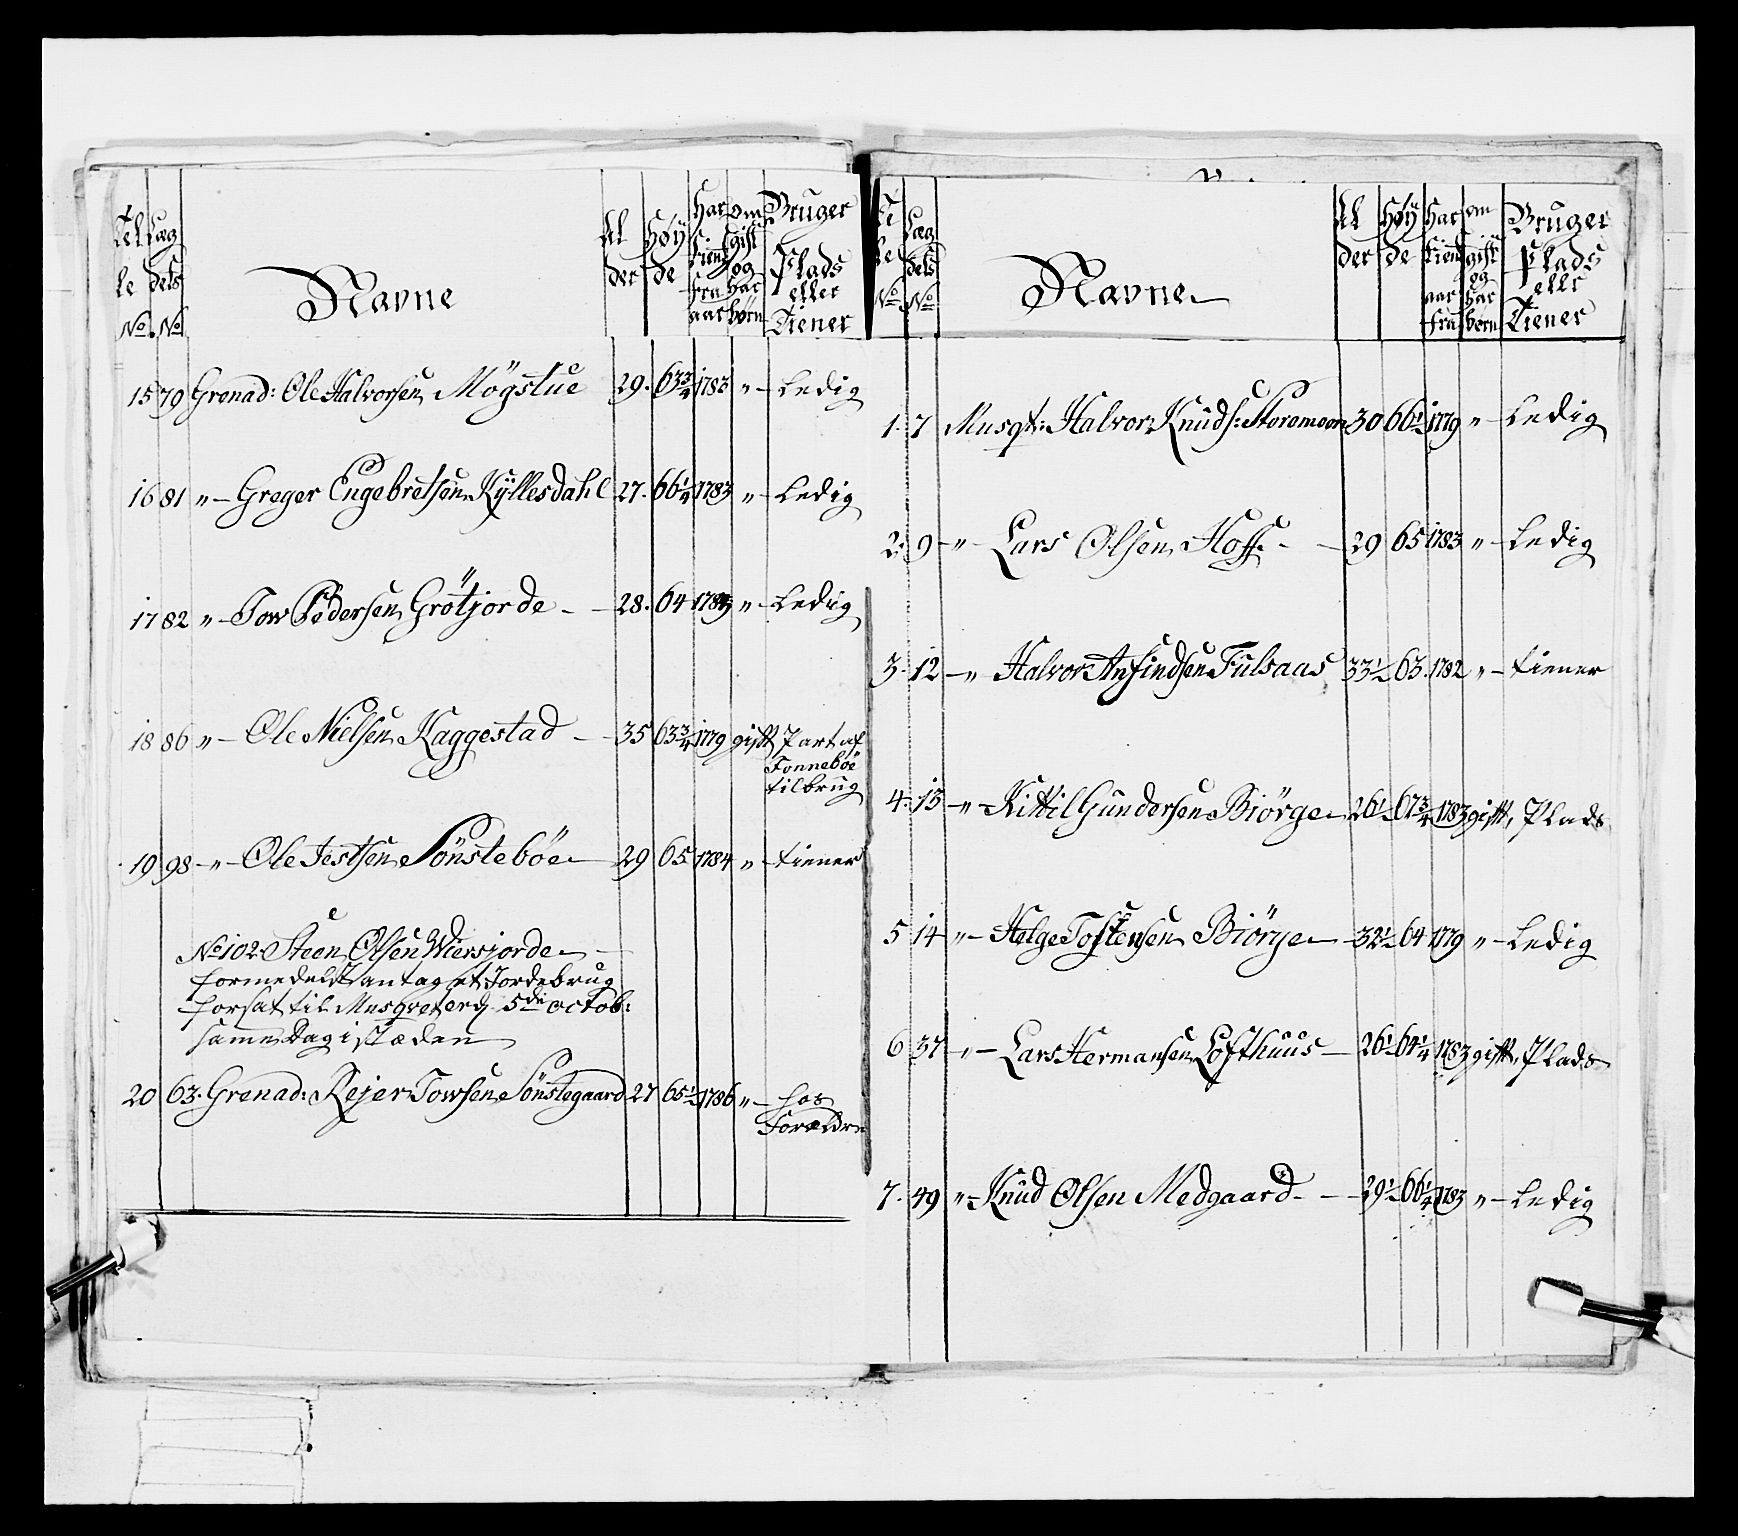 Tel Læg Navne Al Høy Har om Bruger
le dels der de tient gift Plads
No. No fra og eller
aar har Tiener
børn
15 79 Grenad: Ole Halvorsen Møgstue 29. 63 3/4 1783 " Ledig
16 81 " Greger Engebretsen Kyllesdahl 27. 66 1/4 1783 " Ledig
17 82 " Tow Pedersen Grøtjorde 28. 64 " Ledig
18 86 " Ole Nielsen Kaggestad 35 63 3/4 1779 gift Part af
Tonnebøe
tilbrug
19 98 " Ole Jestsen Sønstebøe 29 65 1784 " tiener
No 102 Steen Olsen Wiersjorde
formedelst antaget Jordebrug
forsat til Musqveterq 5de octob:
samme Dag i stæden
20 63. Grenad: Rejer Towsen Sønstegaard 27 65 1/2 1786 " hos
Forældre
Te Læg Navne Al Høy Har om Bruger
le dels der de tient gift Plads
No No aar og eller
fra har Tiener
børn
1. 7 Musqt: Halvor Knuds: Storemoen 30 66 1/2 1779 " Ledig
2. 9 " Lars Olsen Hoff 29 65 1783 " Ledig
3. 12 " Halvor Anfindsen Fulsaas 33 1/2 63. 1782 " tiener
4. 13 " Kittil Gundersen Biørge 26 1/2 67 3/4 1783 gift, Plads
5 14 " Helge Tostensen Biørge 32 1/2 64 1779 " Ledig
6 37 " Lars Hermansen Lofthuus 26 1/2 64 1/4 1783 gift, Plads
7. 49 " Knud Olsen Medgaard 29 1/2 66 1/4 1783 " Ledig